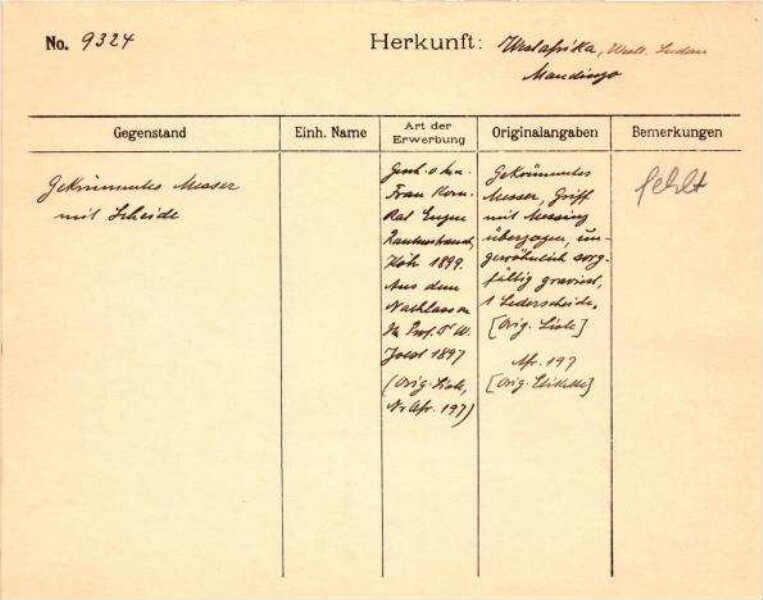 No. 9324
Herkunft: Westafrika, Westl. Sudan
Mandingo
Gegenstand
Einh. Name
Art der
Erwerbung
Originalangaben
Bemerkungen
Gekrümmtes Messer
mit Scheide
Gesch. v.
Frau Kom.
Rat Eugen
Rautenstrauch,
Köln 1899.
Aus dem
Nachlass v.
H. Prof. Dr W.
Joest 1897
(Orig. Liste,
Nr Afr. 197)
Gekrümmtes
Messer, Griff
mit Messing
überzogen, un-
gewöhnlich sorg-
fältig graviert,
1 Lederscheide.
[Orig. Liste]
Afr. 197
[Orig. Etikette]
fehlt